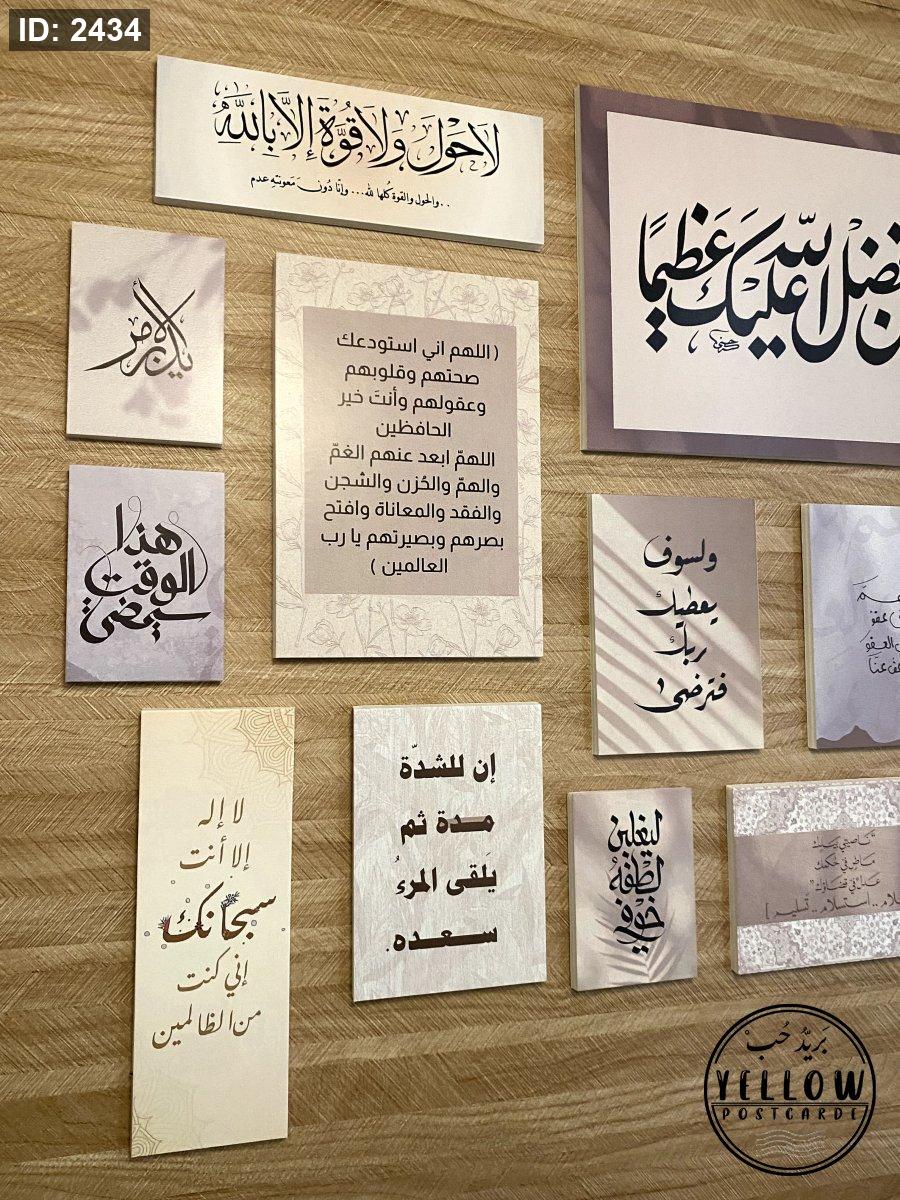 ID: 2434
لَا حَوْلَ وَلَا قُوَّةَ إِلَّا بِاللَّهِ
..والحول والقوة كُلها لله... وإنّا دُونَ مَعونتهِ عدم
فضل الله عليك عظيما
يدبر الأمر
( اللهم اني استودعك
صحتهم وقلوبهم
وعقولهم وأنتَ خير
الحافظين
اللهمّ ابعد عنهم الغمّ
والهمّ والحُزن والشجن
والفقد والمعاناة وافتح
بصرهم وبصيرتهم يا رب
العالمين )
هذا
الوقت
سيمضي
ولسوف
يعطيك
ربك
فترضى
عفو
العفو
عنّا
لا إله
إلا أنت
سبحانك
إني كنت
من الظالمين
إن للشدّة
مـدة ثم
يَلقى المرءُ
سـعـده.
ليغلبن
لطفه
خوفي
"ناصيتي بيدك
ماضٍ في حكمك
عدل في قضاؤك"
استسلام .. تسليم ]
بَريدُ حُبْ
YELLOW
POSTCARDE